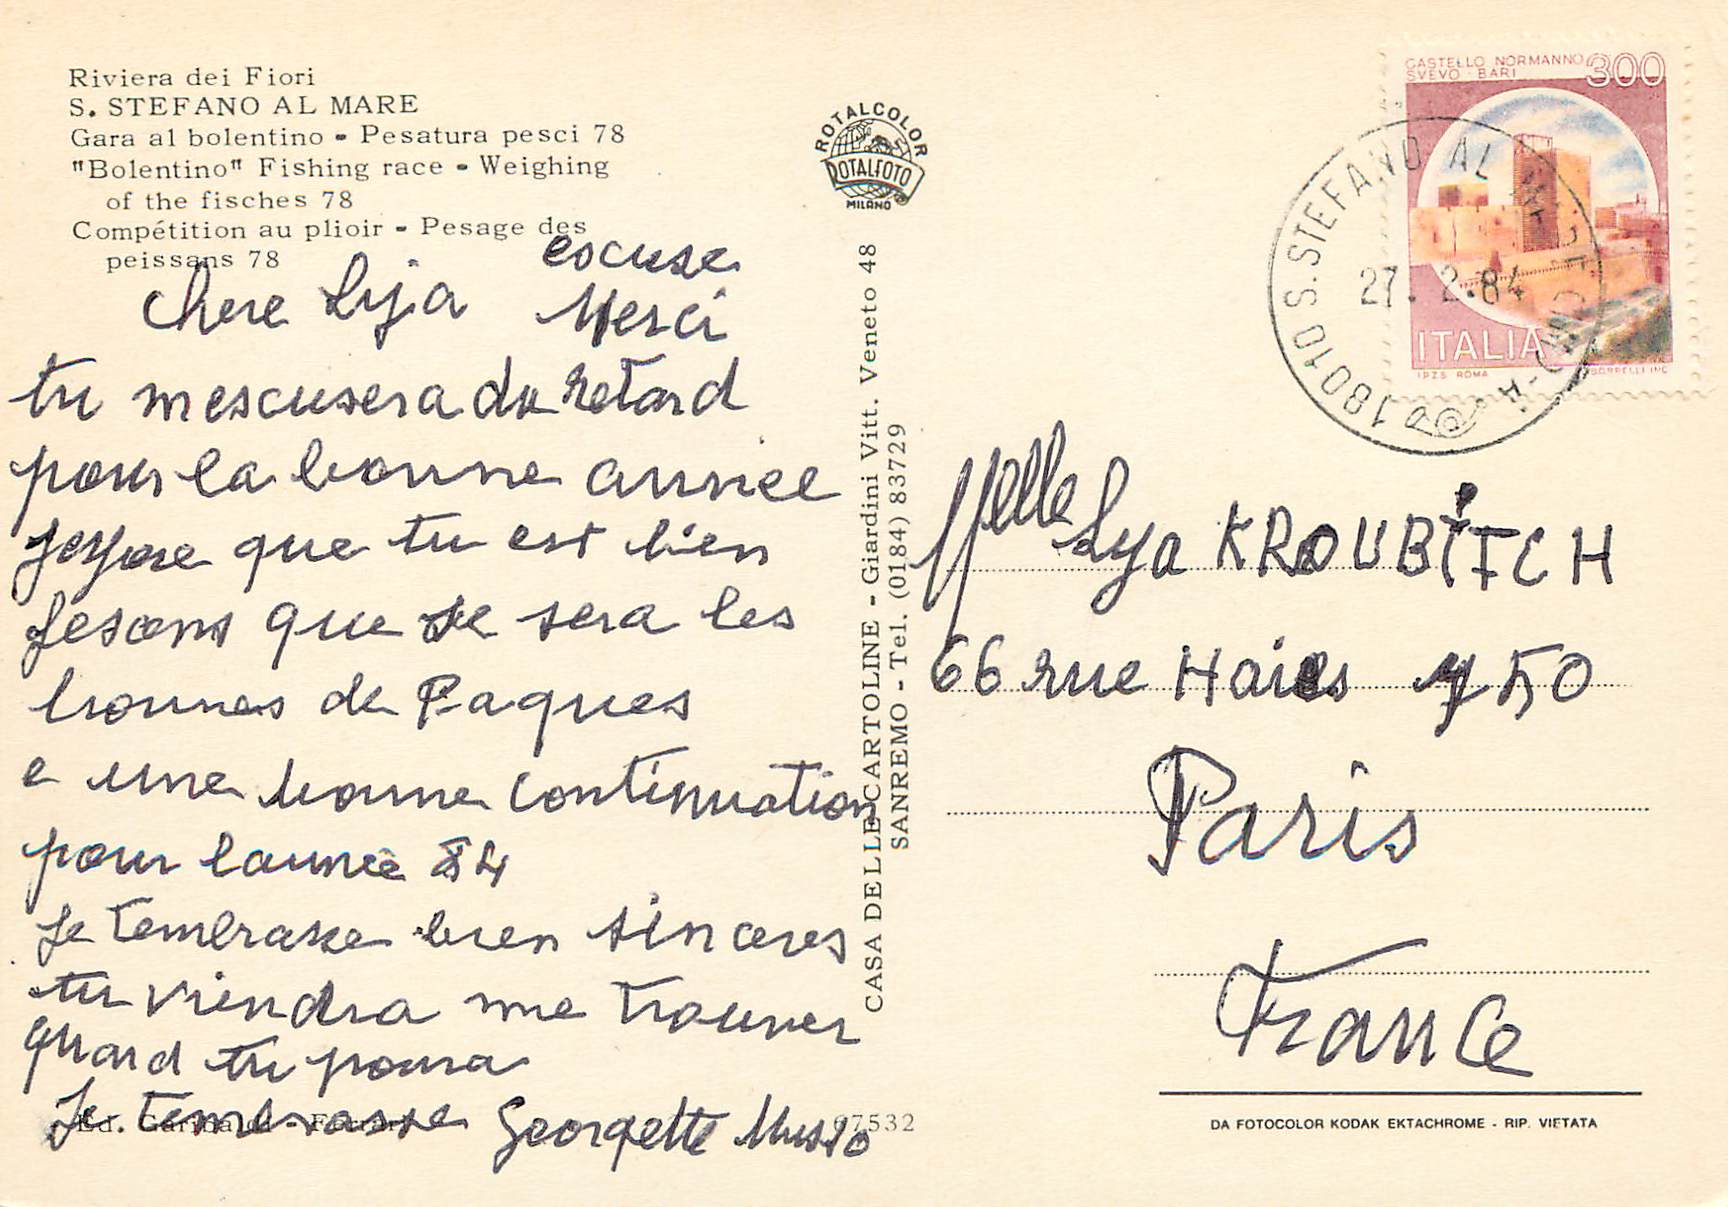 Riviera dei Fiori
S. STEFANO AL MARE
Gara al bolentino - Pesatura pesci 78
"Bolentino" Fishing race - Weighing
of the fisches 78
Compétition au plioir - Pesage des
peissans 78
ROTALCOLOR
ROTALFOTO
MILANO
CASTELLO NORMANNO
SVEVO - BARI
300
ITALIA
I.P.Z.S. ROMA
18010 S. STEFANO AL MARE
27. 2.84
escuse
chere Lyja Merci
tu mescusera du retard
pour la bonne annee
jespere que tu est bien
fesons que se sera les
bonnes de Paques
e une bonne continuation
pour lanneè 84
Je tembrasse bien sinceres
tu viendra me trouver
quand tu poura
Je tembrasse Georgette Musso
Ed. Garibaldi - Ferrari
97532
CASA DELLE CARTOLINE - Giardini Vitt. Veneto 48
SANREMO - Tel. (0184) 83729
Melle Lya KROUBITCH
66 rue Haies 750
Paris
France
DA FOTOCOLOR KODAK EKTACHROME - RIP. VIETATA